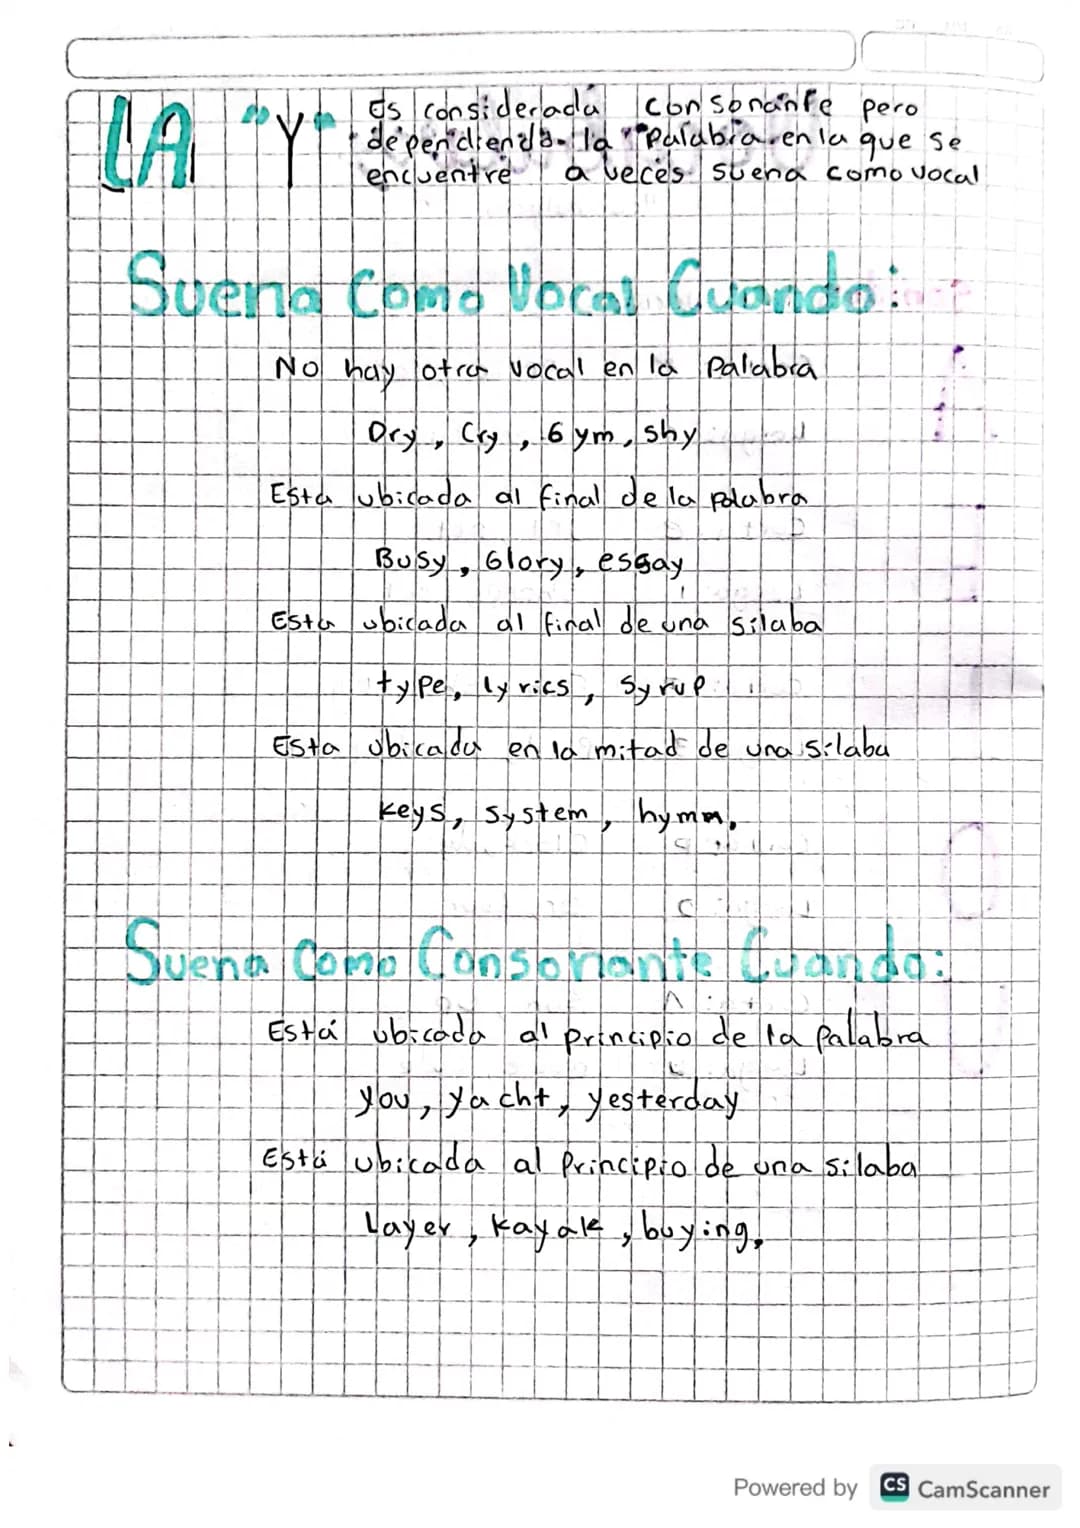 LA "Y" Es considerada consonante pero
dependiendo la palabra en la que se
encuentre a veces suena como vocal
Suena Como Vocal Cuando:
No hay otra vocal en la palabra
Dry, Cry, Gym, shy
Esta ubicada al final de la palabra
Busy, Glory, essay
Esta ubicada al final de una silaba
type, lyrics, syrup
Esta ubicada en la mitad de una silaba
keys, system, hymn,
Suena Como Consonante Cuando:
Está ubicada al principio de la palabra
you, yacht, yesterday
Está ubicada al principio de una silaba
Layer, kayak, buying,
Powered by CS CamScanner